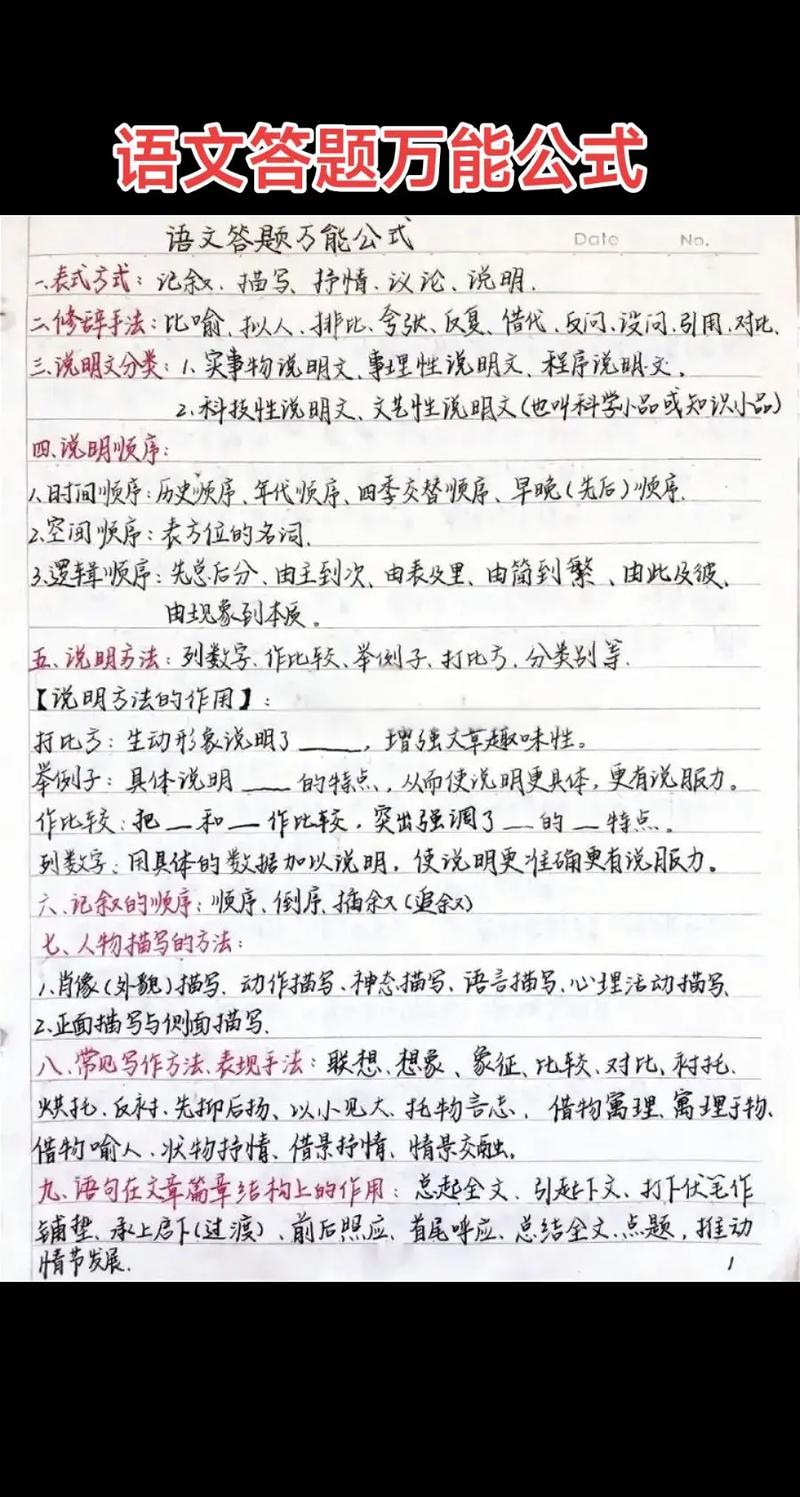 语文答题万能公式
语文答题万能公式 Date No.
一.表式方式：记叙、描写、抒情、议论、说明.
二.修辞手法：比喻、拟人、排比、夸张、反复、借代、反问、设问、引用、对比、
三.说明文分类：1.实事物说明文、事理性说明文、程序说明文.
2.科技性说明文、文艺性说明文(也叫科学小品或知识小品)
四.说明顺序：
1.时间顺序：历史顺序、年代顺序、四季交替顺序、早晚(先后)顺序.
2.空间顺序：表方位的名词.
3.逻辑顺序：先总后分、由主到次、由表及里、由简到繁、由此及彼、
由现象到本质。
五、说明方法：列数字、作比较、举例子、打比方、分类别等.
【说明方法的作用】：
打比方：生动形象说明了____，增强文章趣味性。
举例子：具体说明____的特点，从而使说明更具体，更有说服力。
作比较：把__和__作比较，突出强调了__的__特点。
列数字：用具体的数据加以说明，使说明更准确更有说服力。
六、记叙的顺序：顺序、倒序、插叙(追叙)
七、人物描写的方法：
1.肖像(外貌)描写、动作描写、神态描写、语言描写、心理活动描写、
2.正面描写与侧面描写.
八、常见写作方法、表现手法：联想、想象、象征、比较、对比、衬托、
烘托、反衬、先抑后扬、以小见大、托物言志，借物寓理、寓理于物、
借物喻人、状物抒情、借景抒情、情景交融。
九、语句在文章篇章结构上的作用：总起全文、引起下文、打下伏笔作
铺垫、承上启下(过渡)、前后照应、首尾呼应、总结全文、点题，推动
情节发展.
1